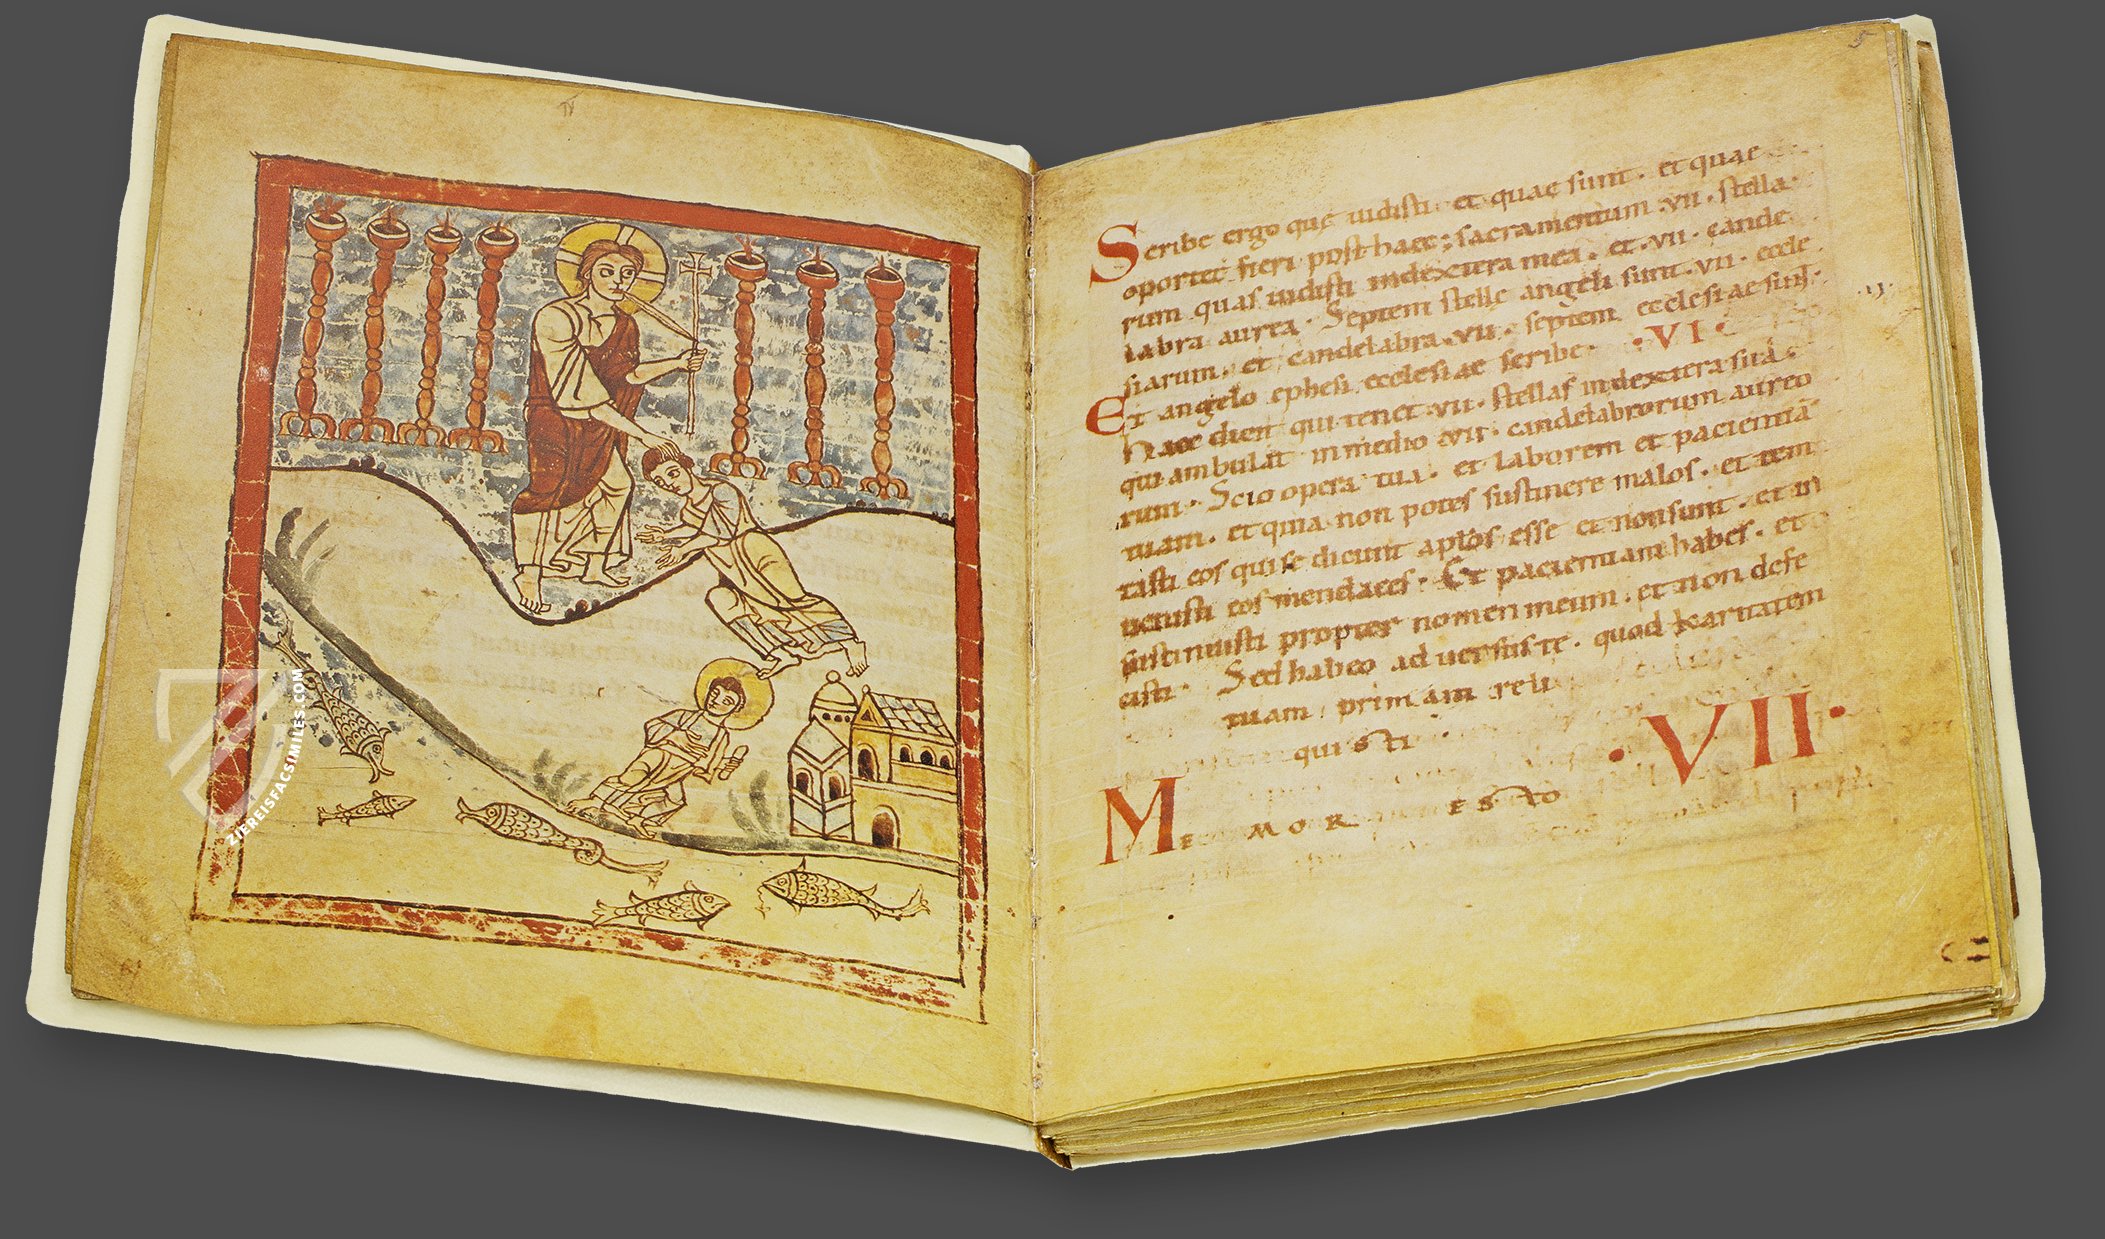 ZIEREISFACSIMILES.COM
5
Scribe ergo quę uidisti · et quae sunt · et quae
oportet fieri post haec; sacramentum ·vii· stella
rum quas uidisti in dextera mea · et ·vii· cande
labra aurea · Septem stelle angeli sunt ·vii· eccle
siarum · et candelabra ·vii· septem ecclesiae sunt ·
Et angelo ephesi ecclesiae scribe · ·VI·
Haec dicit qui tenet ·vii· stellas in dextera sua ·
qui ambulat in medio ·vii· candelabrorum aureo
rum · Scio opera tua · et laborem et pacientiā
tuam · et quia non potes sustinere malos · et tem
tasti eos qui se dicunt aplōs esse et non sunt · et in
uenisti eos mendaces · Et pacientiam habes · et
sustinuisti propter nomen meum · et non defe
cisti · Sed habeo aduersus te · quod karitatem
tuam primam reli
quisti ·
·VII·
MEMOR ESTO